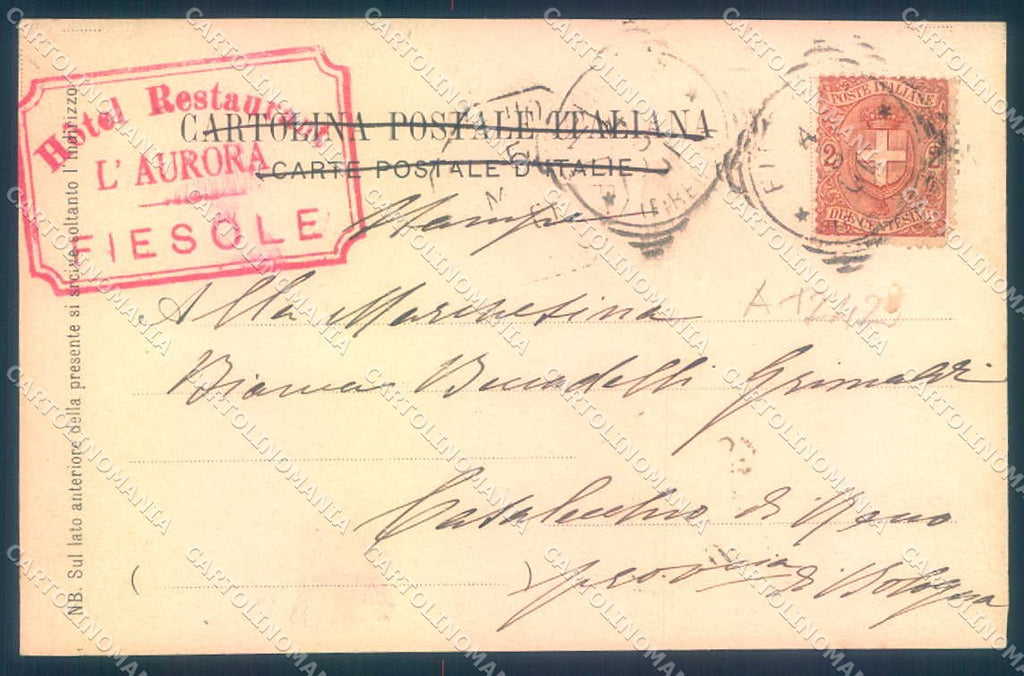 Hotel Restaurant
L' AURORA
FIESOLE
CARTOLINA POSTALE ITALIANA
CARTE POSTALE D'ITALIE
POSTE ITALIANE
2 2
DUE CENTESIMI
Stampe
Alla Marchesina
Bianca Grimaldi
Casalecchio di Reno
provincia di Bologna
( )
NB. Sul lato anteriore della presente si srcive soltanto l'indirizzo.
CARTOLINOMANIA